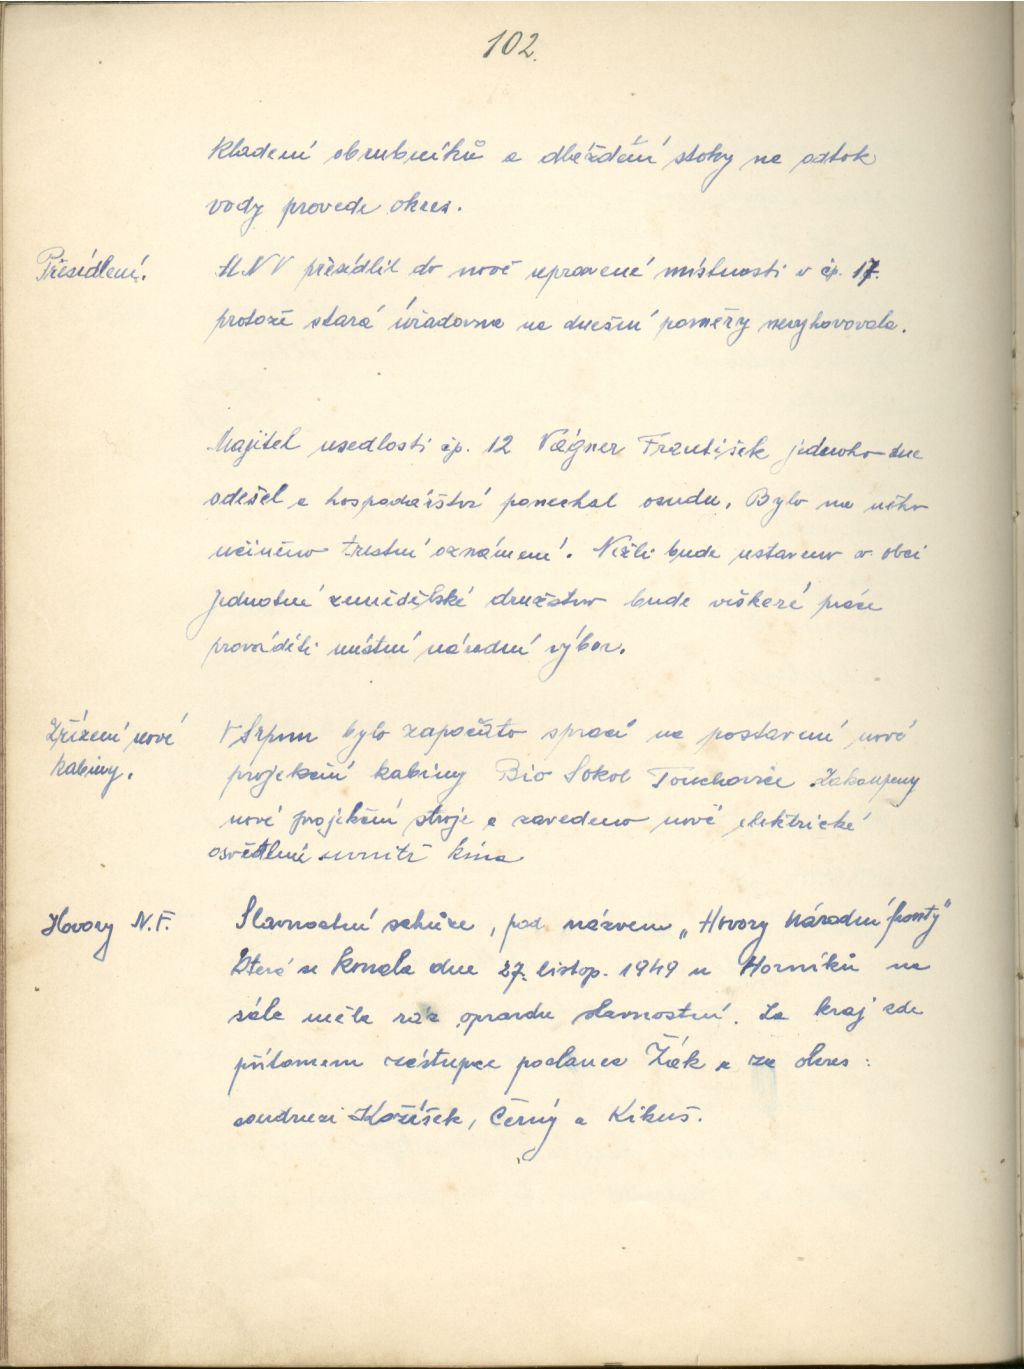 102.
kladení obrubníků a dláždění stoky na odtok
vody provede okres.
Přesídlení.
MNV přesídlil do nově upravené místnosti v čp. 17.
protože stará úřadovna na dnešní poměry nevyhovovala.
Majitel usedlosti čp. 12 Vágner František jednoho dne
odešel a hospodářství ponechal osudu. Bylo na něho
učiněno trestní oznámení. Nežli bude ustaveno v obci
Jednotné zemědělské družstvo bude veškeré práce
prováděti místní národní výbor.
Zřízení nové
kabiny.
V Srpnu bylo započato s prací na postavení nové
projekční kabiny Bio Sokol Touchovice zakoupeny
nové projekční stroje a zavedeno nové elektrické
osvětlení uvnitř kina
Hovory N.F.
Slavnostní schůze, pod názvem „Hovory Národní fronty"
která se konala dne 27. listop. 1949 u Horníků na
sále měla ráz opravdu slavnostní. Za kraj zde
přítomem zástupce poslanec Žák a za okres:
soudruzi Kožíšek, Černý a Kikuš.